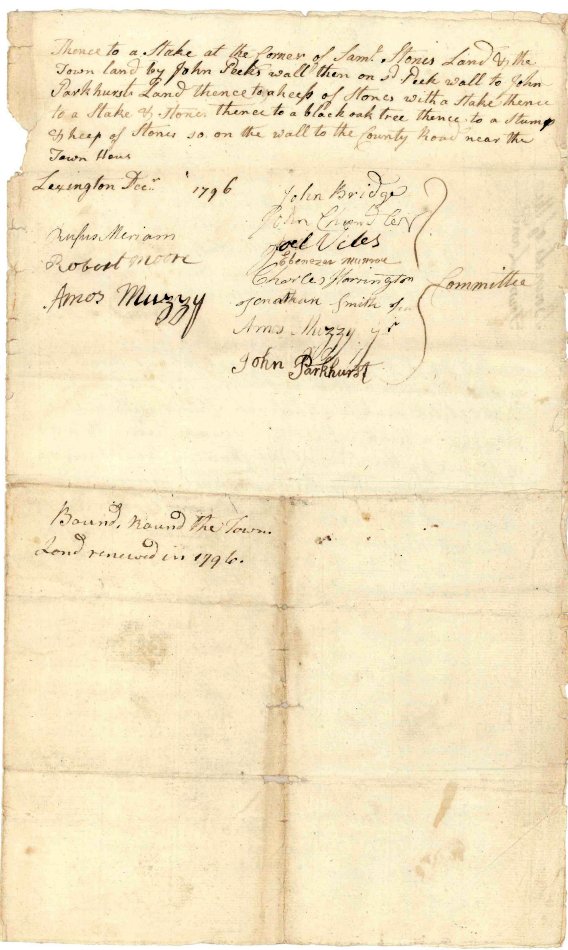 Thence to a Stake at the Corner of Saml. Stones Land & the
Town land by John Peeks wall then on sd Peek wall to John
Parkhursts Land thence to a heep of Stones with a Stake thence
to a Stake & Stones thence to a black oak tree thence to a Stump
& heep of Stones so on the wall to the County Road near the
Town Hous
Lexington Decr. 1796
John Bridge
John Chandler
Rufus Meriam
Joel Viles
Robert Moore
Ebenezer Munroe
Charles Harrington
Committee
Amos Muzzy
Jonathan Smith
Amos Muzzy jr
John Parkhurst
Bound. Round the Town.
Land renewed in 1796.